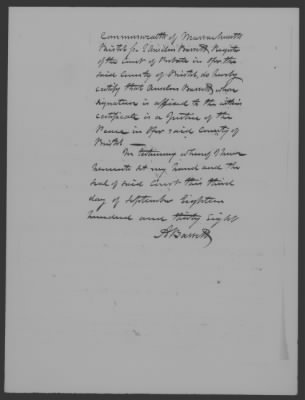 Commonwealth of Massachusetts
Bristol ss. I Anselm Bassett Register
of the Court of Probate in & for the
said County of Bristol, do hereby
certify that Anselm Bassett, whose
signature is affixed to the within
certificate is a Justice of the
Peace in & for said County of
Bristol
In testimony whereof I have
hereunto set my hand and the
seal of said Court this third
day of September Eighteen
hundred and thirty Eight
A Bassett